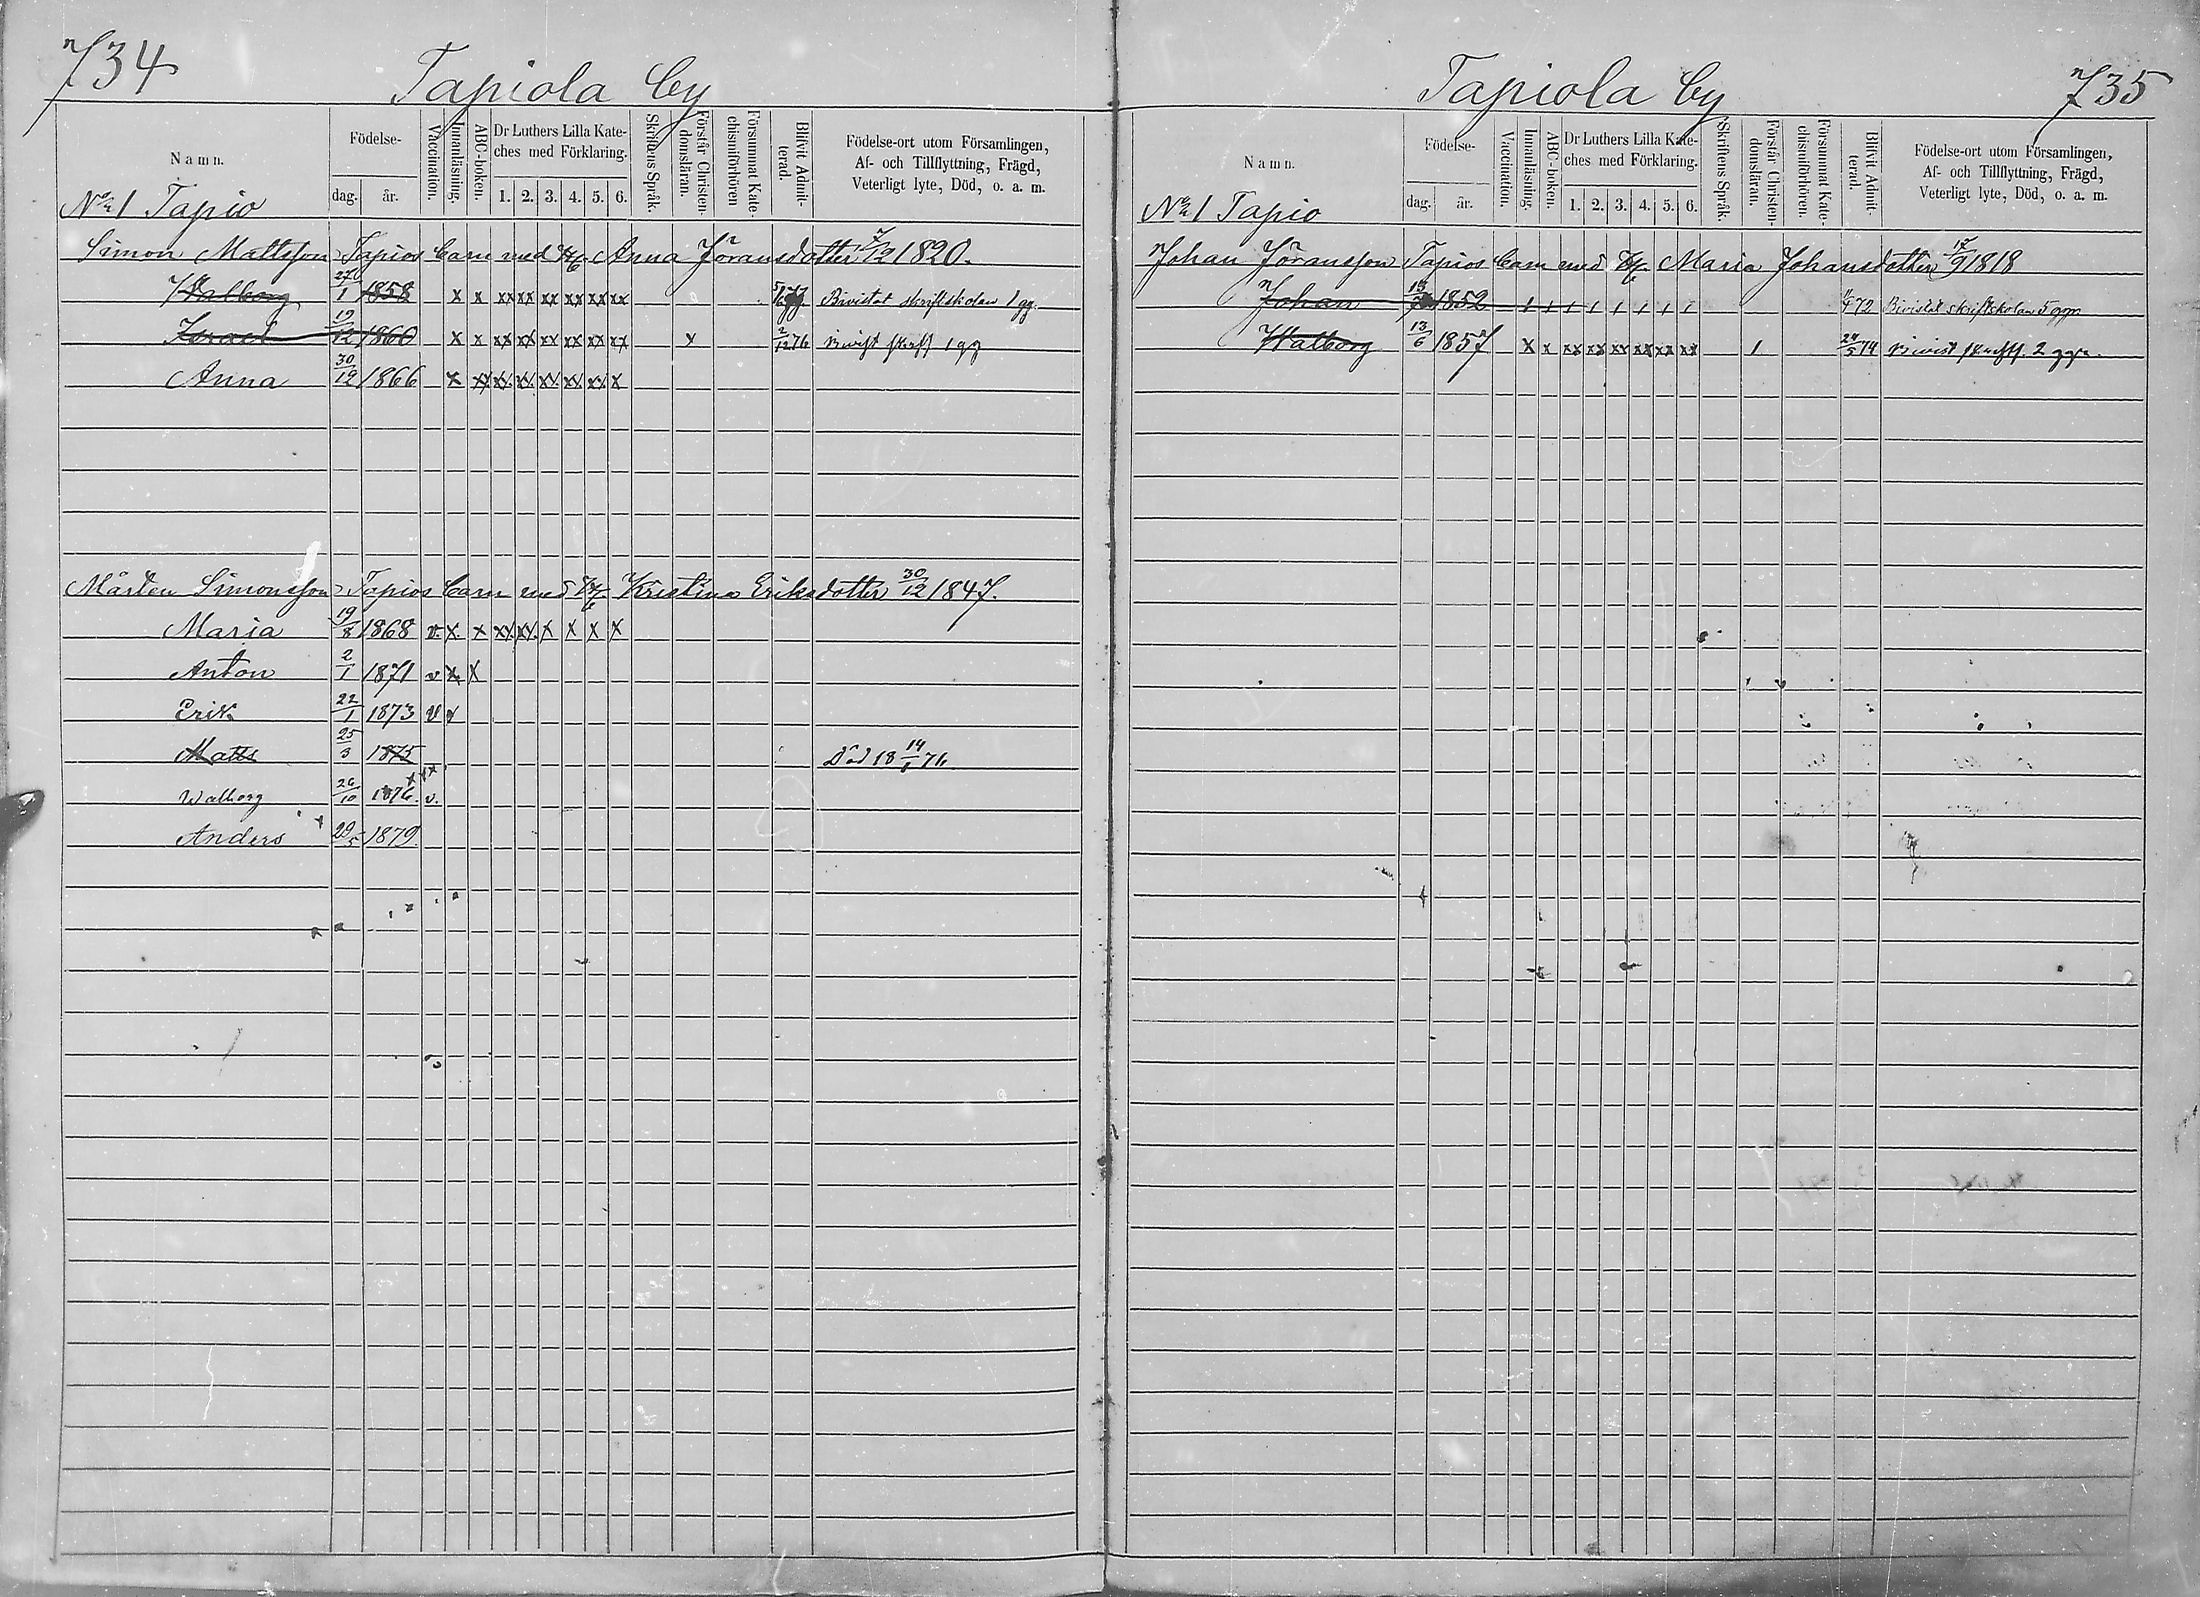 734
Tapiola by
Namn.
Födelse-
dag.
år.
Vaccination.
Innanläsning.
ABC-boken.
Dr Luthers Lilla Kate-
ches med Förklaring.
1. 2. 3. 4. 5. 6.
Skriftens Språk.
Förstår Christen-
domsläran.
Försummat Kate-
chismiförhören
Blifvit Admit-
terad.
Födelse-ort utom Församlingen,
Af- och Tillflyttning, Frägd,
Veterligt lyte, Död, o. a. m.
No 1 Tapio
Simon Mattsson Tapios barn med Anna Göransdotter 7/12 1820.
Walborg 27/1 1858 x x xx xx xx xx xx xx Bivistat skriftskolan 1 gg.
Israel 19/12 1860 x x xx xx xx xx xx xx x 2/12 76 Bivist skrifts 1 gg
Anna 30/12 1866 x xx xx xx xx xx xx x
Mårten Simonsson Tapios barn med Kristina Eriksdotter 30/12 1847.
Maria 19/8 1868 v. x. x xx. xx. x x x x
Anton 2/1 1871 v x x
Erik 22/1 1873 v x
Matts 25/3 1875 Död 18 76
Walborg 26/10 1876. v.
Anders 29/5 1879.
735
Tapiola by
Namn.
Födelse-
dag.
år.
Vaccination.
Innanläsning.
ABC-boken.
Dr Luthers Lilla Kate-
ches med Förklaring.
1. 2. 3. 4. 5. 6.
Skriftens Språk.
Förstår Christen-
domsläran.
Försummat Kate-
chismiförhören.
Blifvit Admit-
terad.
Födelse-ort utom Församlingen,
Af- och Tillflyttning, Frägd,
Veterligt lyte, Död, o. a. m.
No 1 Tapio
Johan Göransson Tapios barn med Maria Johansdotter 17/9 1818
Johan 1852 72 Bivistat skriftskolan 5 ggr
Walborg 13/6 1857 x x xx xx xx xx xx xx 1 24/5 74 Bivist skrifts. 2 ggr.